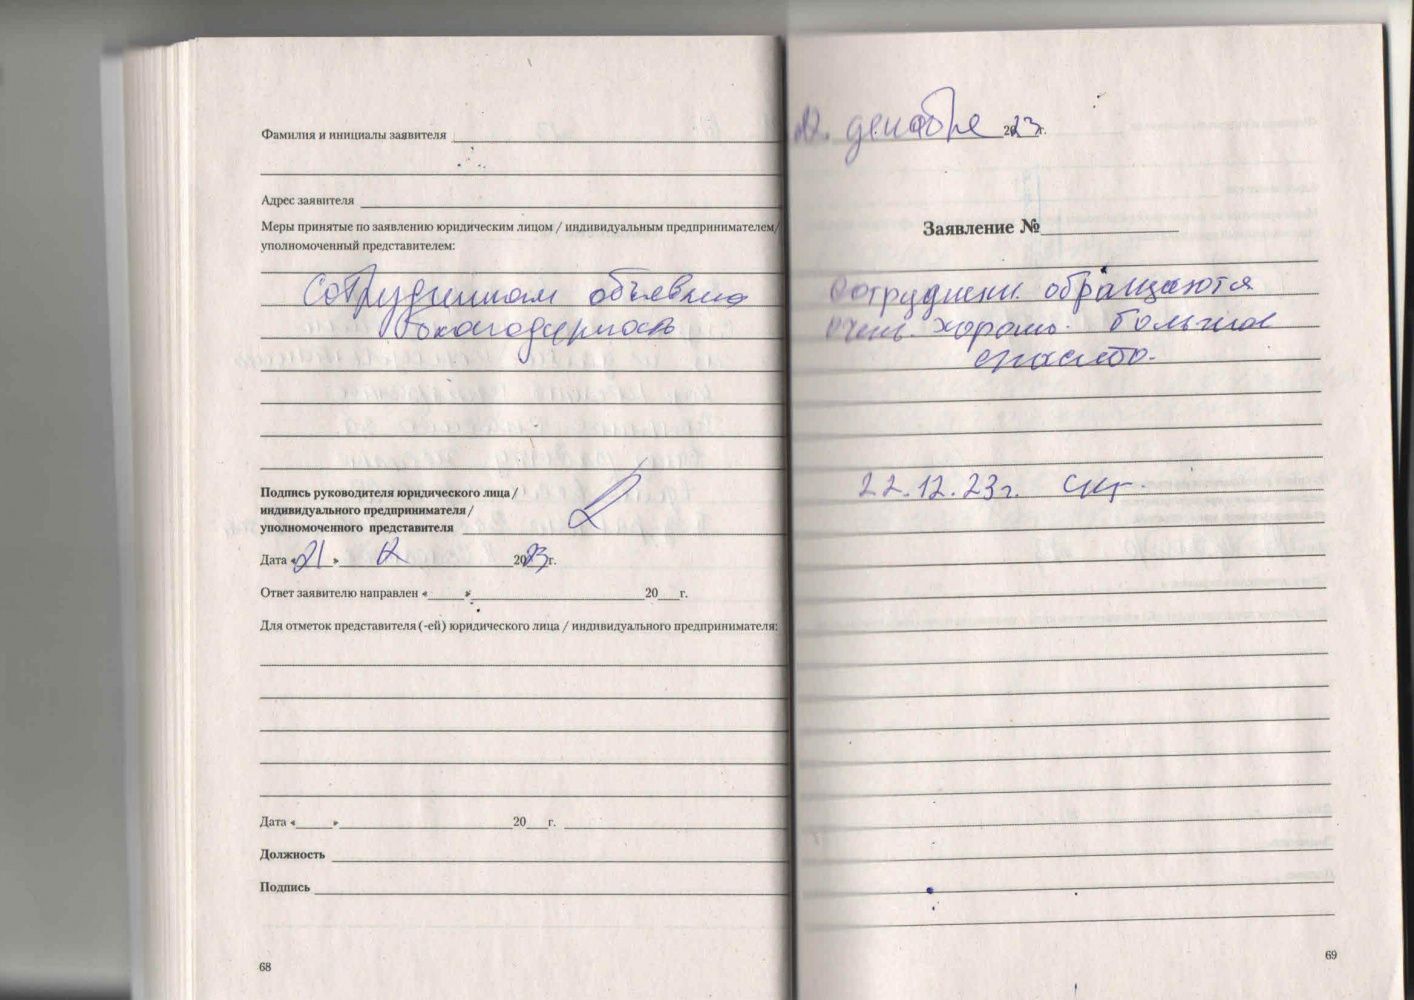 Фамилия и инициалы заявителя
Адрес заявителя
Меры принятые по заявлению юридическим лицом / индивидуальным предпринимателем/
уполномоченный представителем:
Сотрудникам объявлена
благодарность
Подпись руководителя юридического лица /
индивидуального предпринимателя /
уполномоченного представителя
Дата «21» 12 2023г.
Ответ заявителю направлен «____»____20__г.
Для отметок представителя (-ей) юридического лица / индивидуального предпринимателя:
Дата «____»____20__г.
Должность
Подпись
68
декабре 2023г.
Заявление №
Сотрудники обращаются
очень хорошо. Большое
спасибо.
22.12.23г.
69